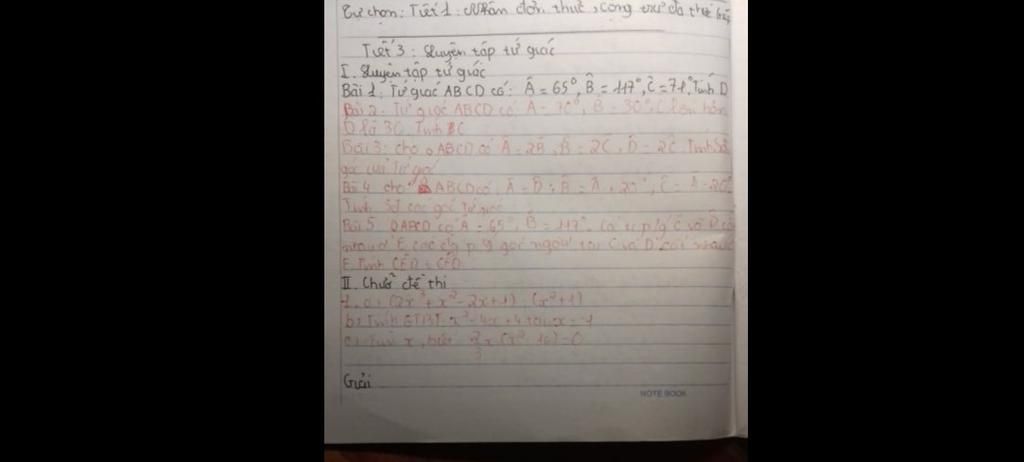 Tự chọn: Tiết 1: Nhân đơn thức, cộng trừ đa thức
Tiết 3: Luyện tập tứ giác
I. Luyện tập tứ giác
Bài 1: Tứ giác ABCD có: Â = 65°, B̂ = 117°, Ĉ = 71°. Tính D
Bài 2: Tứ giác ABCD có Â = 70°, B̂ = 30°, C lớn hơn
D là 30. Tính BC
Bài 3: cho ◊ ABCD có Â = 2B̂, B̂ = 2Ĉ, D̂ = 2Ĉ Tính Số
góc của Tứ giác
Bài 4 cho ABCD có Â = D̂, B̂ = Â + 20°, Ĉ = Â - 20°
Tính Sđ các góc Tứ giác
Bài 5. ◊ABCD có Â = 65°, B̂ = 117°. Các tia p/g Ĉ và D̂ cắt
nhau ở E, các đg p/g góc ngoài tại C và D cắt nhau
F. Tính CÊD, CF̂D
II. Chữa đề thi
1. a, (2x³ + x² - 2x + 1) : (x² + 1)
b, Tính GTBT x² - 4x + 4 tại x = -1
c, Tìm x, biết 2/3 x (x² - 16) = 0
Giải
NOTE BOOK